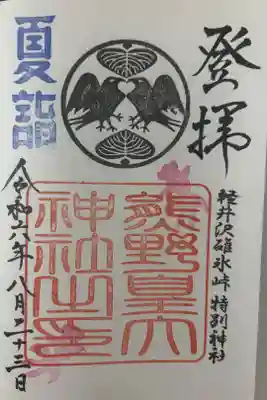 登拝
軽井沢碓氷峠 特別神社
夏詣
熊野皇大
神社之印
令和六年八月二十三日